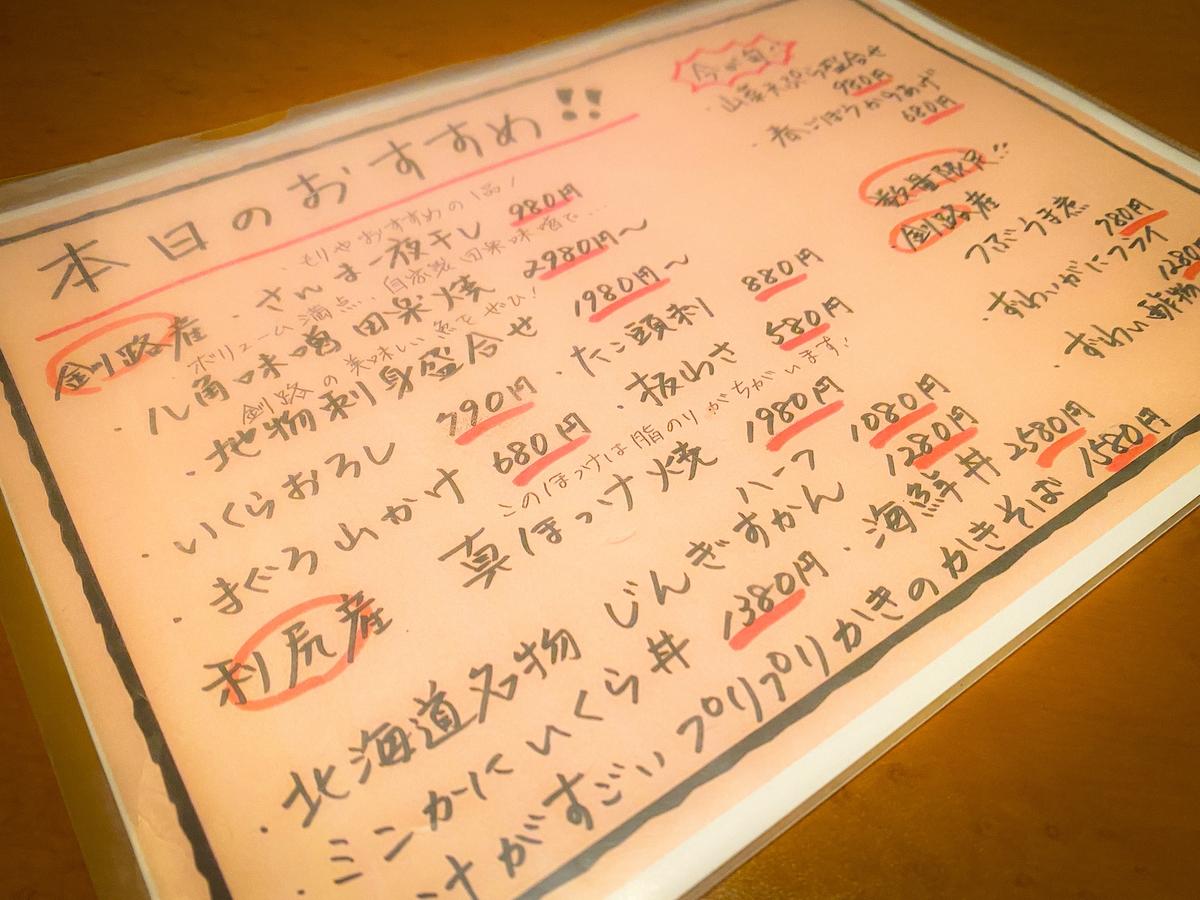 本日のおすすめ!!
・もりやおすすめの1品!
釧路産 ・さんま一夜干し 980円
ボリューム満点… 自家製田楽味噌で…
・八角味噌田楽焼 2980円〜
釧路の美味しい魚をぜひ!
・地物刺身盛合せ 1980円〜
・いくらおろし 390円 ・たこ頭刺 880円
・まぐろ山かけ 680円 ・板わさ 580円
このほっけは脂のりがちがいます!
利尻産 真ほっけ焼 1980円
ハーフ 1080円
・北海道名物 じんぎすかん 1280円
・ミニかにいくら丼 1380円 ・海鮮丼 2580円
汁がすごいプリプリかきのかきそば 1580円
今が旬
・山菜天ぷら盛合せ 980円
・春ごぼうからあげ 680円
数量限定!!
釧路産 つぶうま煮 780円
・ずわいがにフライ 1280
・ずわい酢物